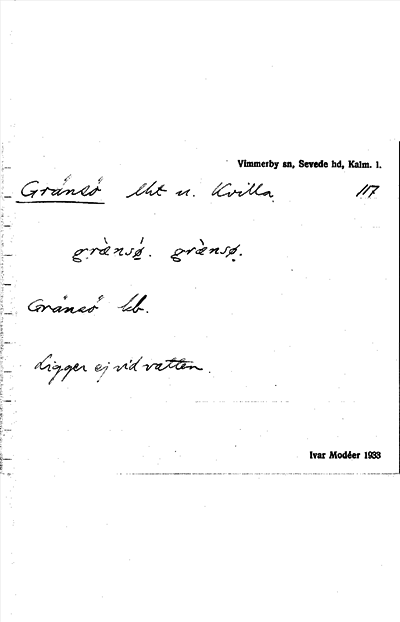 Vimmerby sn, Sevede hd, Kalm. l.
Gränsö lht u. Kvilla 117
grὰnsǿ. grὰnsø.
Gränsö kb.
Ligger ej vid vatten.
Ivar Modéer 1933